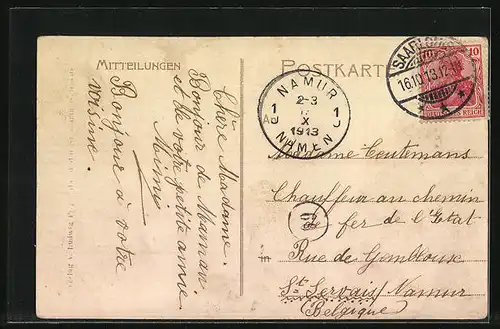 MITTEILUNGEN
POSTKARTE
Chère Madame.
Bonjour de Maman
et de votre petite amie
Mimi
Bonjour à votre
voisine.
NAMUR
2-3
X
1913
NAMEN
1 1
16.10.13.12-
10
DEUTSCHES REICH
Madame Coutemans
Chauffeur au chemin
de fer de l'Etat
Rue de Gembloux
St. Servais/Namur
Belgique